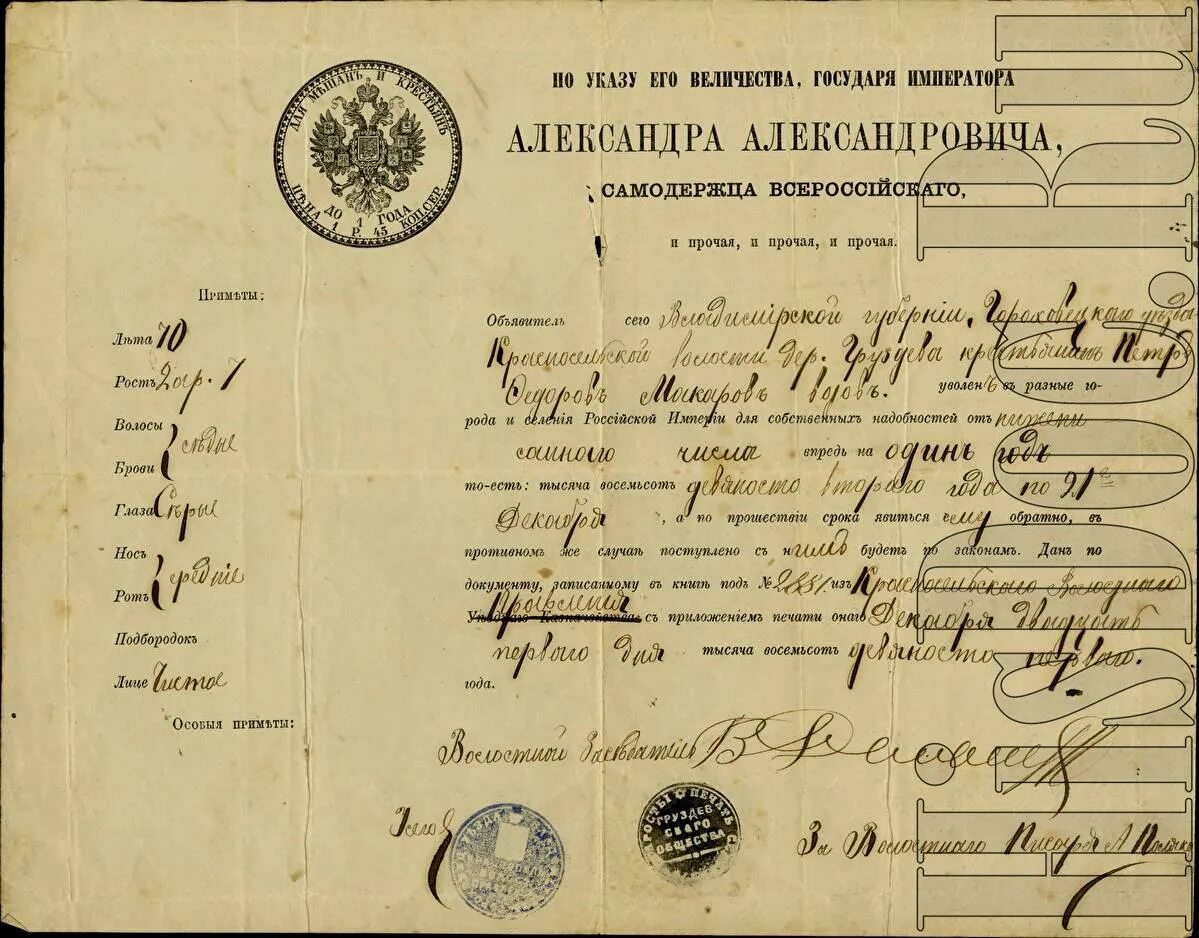 ДЛЯ МѢЩАНЪ И КРЕСТЬЯНЪ
ДО 1 ГОДА
ЦѢНА 1 Р. 45 КОП. СЕР.
ПО УКАЗУ ЕГО ВЕЛИЧЕСТВА, ГОСУДАРЯ ИМПЕРАТОРА
АЛЕКСАНДРА АЛЕКСАНДРОВИЧА,
САМОДЕРЖЦА ВСЕРОССІЙСКАГО,
и прочая, и прочая, и прочая.
Примѣты:
Лѣта 70
Ростъ 2 ар. 7
Волосы
Брови
сѣдые
Глаза Сѣрые
Носъ
Ротъ
средніе
Подбородокъ
Лице Чистое
Особыя примѣты:
Объявитель сего Владимірской губерніи, Гороховецкого уѣзда
Красносельской волости дер. Груздева крестьянинъ Петръ
Федоровъ Макаровъ вдовъ. уволенъ въ разные го-
рода и селенія Россійской Имперіи для собственныхъ надобностей отъ нижепи
саннаго числа впредь на одинъ годъ
то-есть: тысяча восемьсотъ девяносто втораго года по 21е
Декабря, а по прошествіи срока явиться ему обратно, въ
противномъ же случаѣ поступлено съ нимъ будетъ по законамъ. Данъ по
документу, записанному въ книгѣ подъ № 2881. изъ Красносельского Волостнаго
Правленія
Уѣзднаго Казначейства съ приложеніемъ печати онаго Декабря двадцать
первого дня тысяча восемьсотъ девяносто перваго.
года.
Волостной
За Волостнаго Писаря А
ПЕЧАТЬ
ГРУЗДЕВ
СКАГО
ОБЩЕСТВА